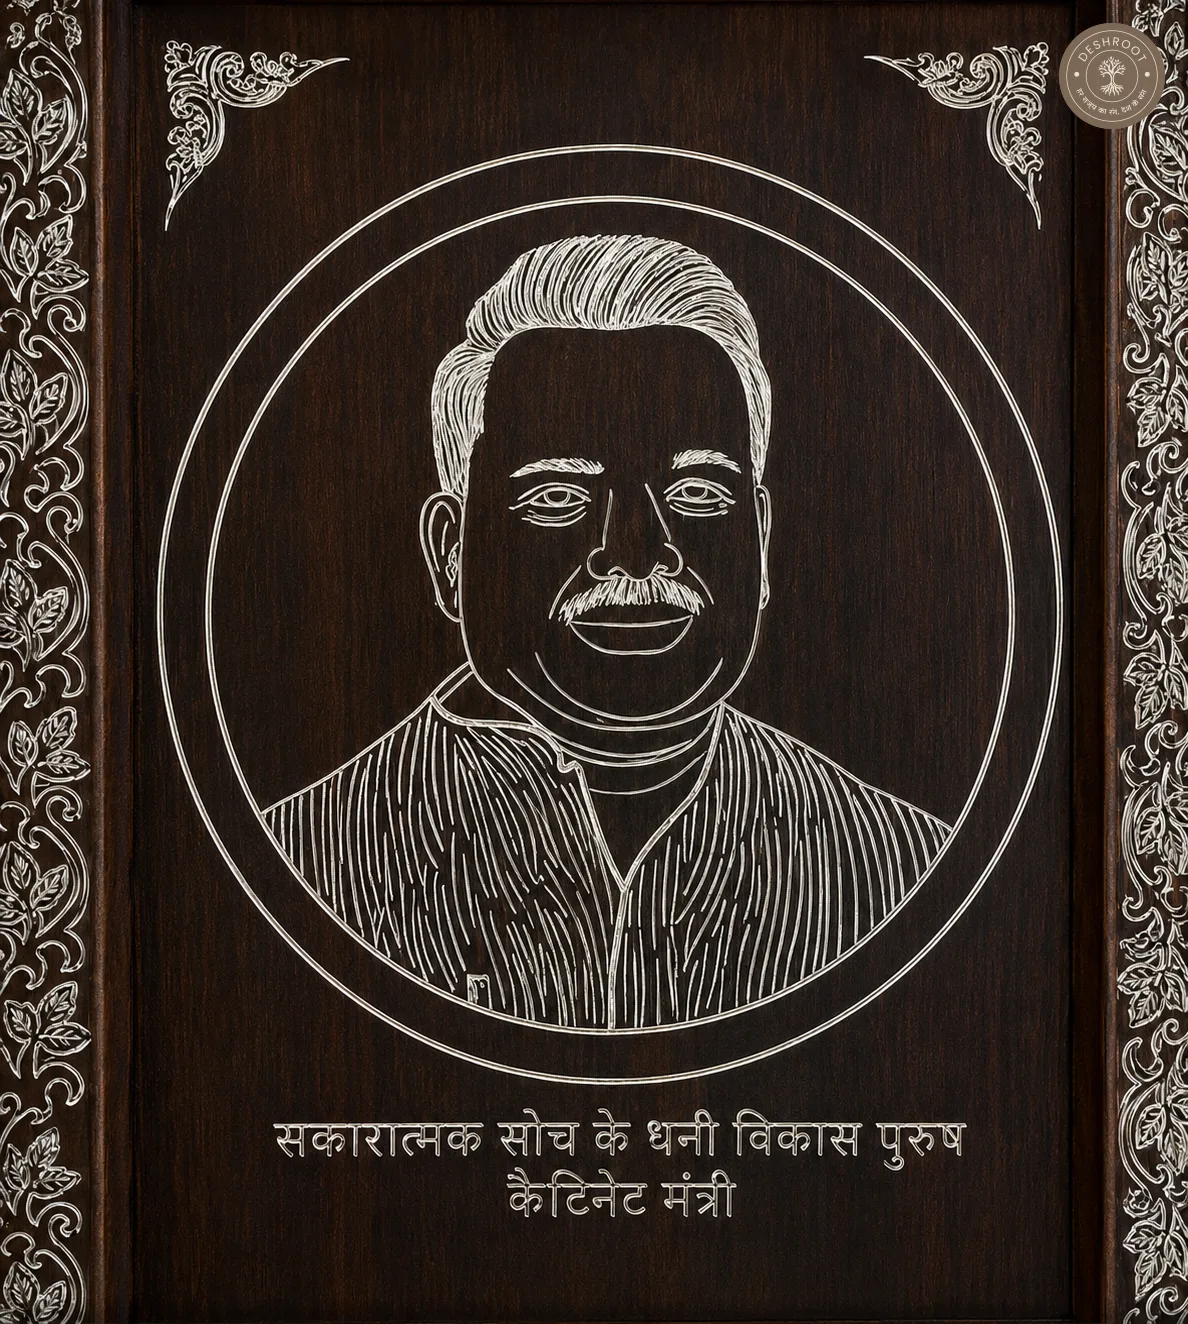 DESHROOT
सकारात्मक सोच के धनी विकास पुरुष
कैटिनेट मंत्री